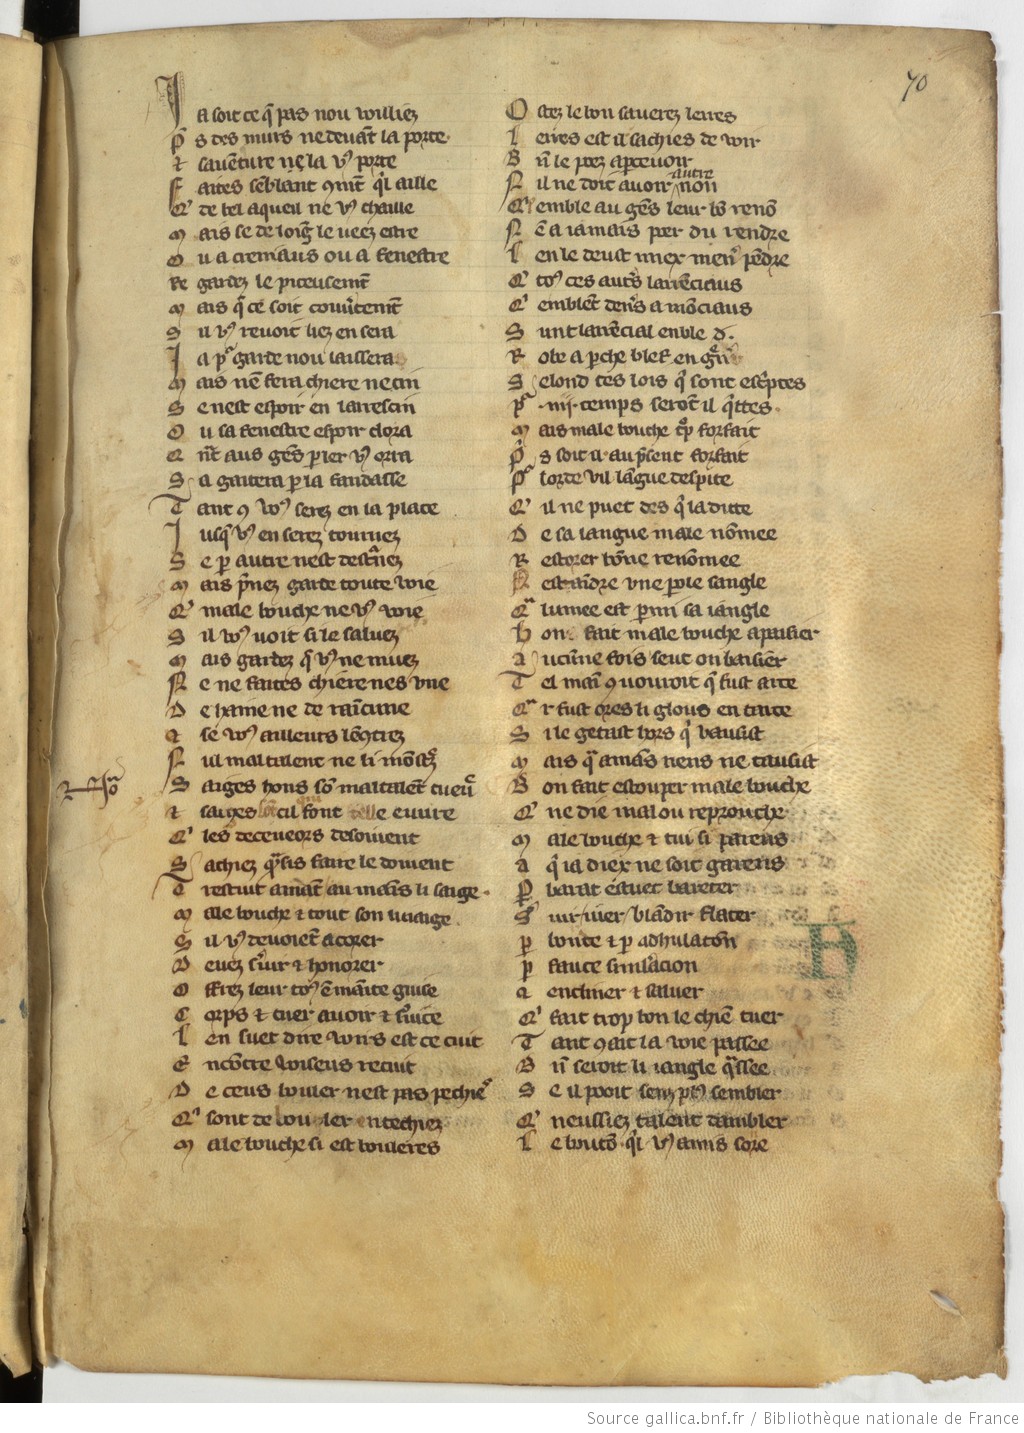 70
Ja soit ce q̄ pas nou willies
P᷑s des murs ne devāt la porte
Et saventure us la vꝰ porte
Faites sēblant 9ment q̓l aille
Q̓ de bel aqueil ne vꝰ chaille
Mais se de loīg le veez estre
Ou a creniaus ou a fenestre
Regardez le piteusemēt
Mais q̄ ce soit couv̓temēt
Sil vꝰ revoit liez en sera
Ja pʳ garde nou laissera
Mais nē fera chiere ne cin
Se nest espoir en larrecin
Ou sa fenestre espoir clora
Qn̄t aus gēs parler vꝰ orra
Sa gaitera p̱ la fandasse
Tant 9 vꝰ serez en la place
Jusq̄ vꝰ en serez tournez
Se p̱ autre nest destʳnez
Mais p̄nez garde toute voie
Q̓ male bouche ne vꝰ voie
Sil vꝰ voit si le saluez
Mais gardez q̄ vꝰ ne muez
Ne ne faites chiere nes une
De haine ne de rancune
Et se vꝰ ailleurs lēcōtrez
Nul maltalent ne li mōstrez
Saiges hons sō maltalēt cuevre
Et saiges sōt cil qui font telle evvre
Q̓ les deceveors desoivent
Sachiez q̓nsis faire le doivent
Trestuit amāt au mains li saige
Male bouche & tout son linaige
Sil vꝰ devoiēt acorer
Devez s̓vir & honorer
Offrez leur toꝰ ē mainte guise
Corps & cuer avoir & s̓vice
Len suet dire voirs est ce cuit
Encōtre voiseus recuit
De ceus bouler nest pas pechiē
Q̓ sont de bouler entechiez
Male bouche si est bouleres
Ostez le bou saverez leres
Leires est il sachies de voir
Bn̄ le poez apcevoir
Nil ne doit avoir autre non
Q̓ emble au gēs leur bō renō
Nē a iamais pooer du rendre
Len le deust miex mener pēdre
Q̓ toꝰ ces autres larrēciaus
Q̓ emblēt deniers a mōciaus
Sunt larrēcial enble .d.
Robe a perche blef en grenier
Selond ces lois q̓ sont escriptes
Pʳ .iiij. temps serōt il quites
Mais male bouche trop forfait
P᷑s soit il au present forfait
Pʳ lorde vil lāgue despite
Q̓l ne puet des q̓ la dite
De sa langue male nōmee
Restorer bōne renōmee
Nestaindre une pole sangle
Qʳ lumee est parmi sa iangle
Bon fait male bouche apaisier
Aucune fois seut on baisier
Tel main 9 vouroit q̄ fust arse
Qʳ fust ores li glous en tarse
Si le getast hors q̄ bausist
Mais qʳ amans riens ne tausist
Bon fait estouper male bouche
Q̓ ne die mal ou reprouche
Male bouche & tui si parens
A q̓ ia diex ne soit garens
P̱ barat estuet bareter
Servir iuer blādir flater
P̱ bonte & p̱ adhulatōn
P̱ fauce similacion
Et encliner & saluer
Q̓ fait trop bon le chiē tuer
Tant 9 ait la voie passee
Bn̄ seroit li iangle q̄ssee
Se il pooit senz plꝰ sembler
Q̓ neussiez talent dambler
Le boutō q̓l vꝰ amis sore
B
Source gallica.bnf.fr / Bibliothèque nationale de France